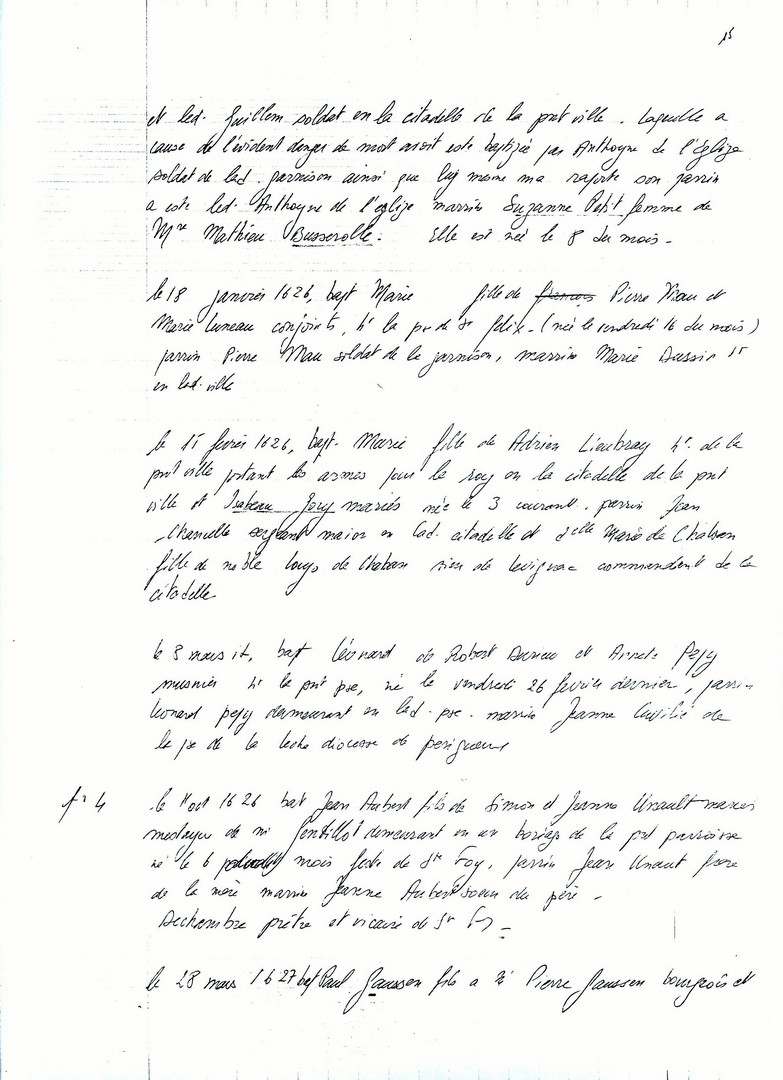 15
et led. Guillem soldat en la citadelle de la pnt ville. Laquelle a
cause de l'évident danger de mort avoit este baptizée par Anthoyne de l'églize
soldat de lad. garnison ainsi que luy meme ma raporte son parrin
a este led. Anthoyne de l'eglize marrine Suzanne Petit femme de
Mre Mathieu Busserolle. Elle est née le 8 du mois -
le 18 janvier 1626, bapt Marie fille de Pierre Mau et
Marie Luneau conjoints, ht la pse de St felix - (née le vendredi 16 du mois)
parrin Pierre Mau soldat de la garnison, marrine Marie
en lad. ville
le 11 fevrier 1626, bapt. Marie fille de Adrien Lieubray ht. de la
pnt ville portant les armes pour le roy en la citadelle de la pnt
ville et Isabeau Jory mariés née le 3 courant. parrin Jean
sergeant major en lad. citadelle et delle Marie de Chaban
fille de noble Louys de Chaban sieur de commendent de la
citadelle
le 3 mars it, bapt Léonard de Robert et Pepy
ht la pnt pse, né le vendredi 26 fevrier dernier, parrin
Leonard pepy demeurant en lad. pse. marrine Jeanne de
la pse de la diocese de perigueux
fo 4
le oct 1626 bat Jean Aubert fils de Simon et Jeanne mariés
mestayer de mr Gentillot demeurant en un boriage de la pnt parroisse
né le 6 mois feste de Ste Foy, parrin Jean frere
de la mère marrine Jeanne Aubert soeur du père -
Dechambre prêtre et vicaire de Ste Foy -
le 28 mars 1627 bat Paul Jaussen fils a Pierre Jaussen bourgeois et